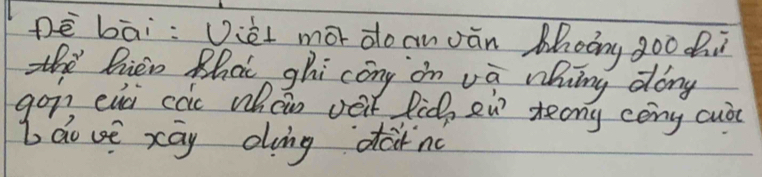 Đề bài : Viết một đoạn văn khoảng 200 chữ
thể hiện khắc ghi công ơn và những đóng
góp của các nhân vật lịch sử trong công cuộc
bảo vệ xây dựng đất nc